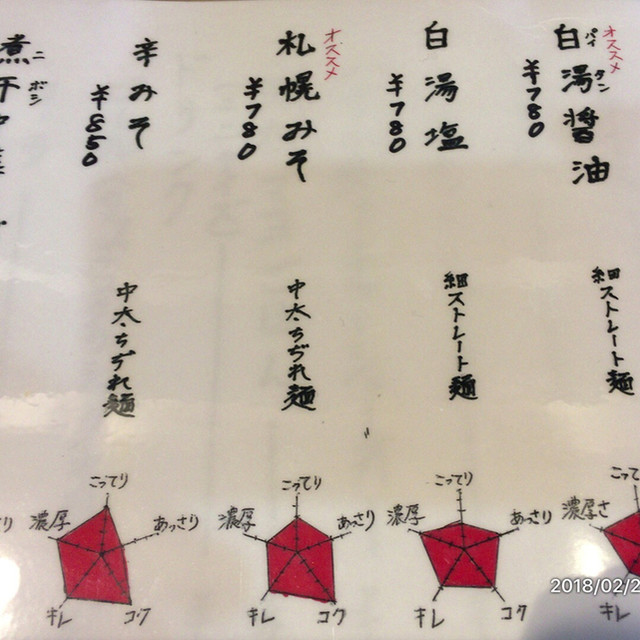 オススメ
白湯醤油
パイタン
¥780
細ストレート麺
濃厚さ
キレ
白湯塩
¥780
細ストレート麺
こってり
あっさり
コク
キレ
濃厚
オススメ
札幌みそ
¥780
中太ちぢれ麺
こってり
あっさり
コク
キレ
濃厚
辛みそ
¥850
中太ちぢれ麺
こってり
あっさり
コク
キレ
濃厚
煮干
ニボシ
2018/02/2